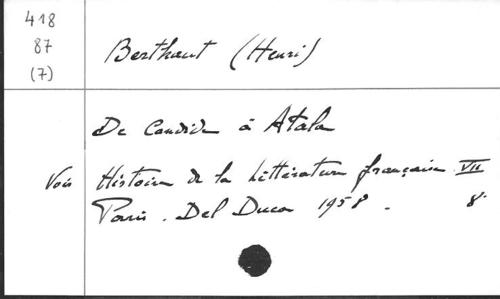 418
87
(7)
Berthaut (Henri)
De Candide à Atala
Voir Histoire de la Littérature française VII
Paris. Del Duca 1958. 8°